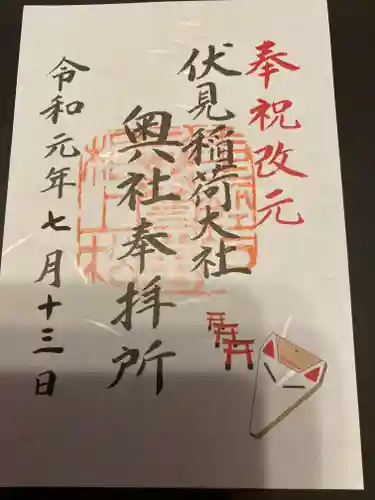 奉祝改元
伏見稲荷大社
奥社奉拝所
令和元年七月十三日